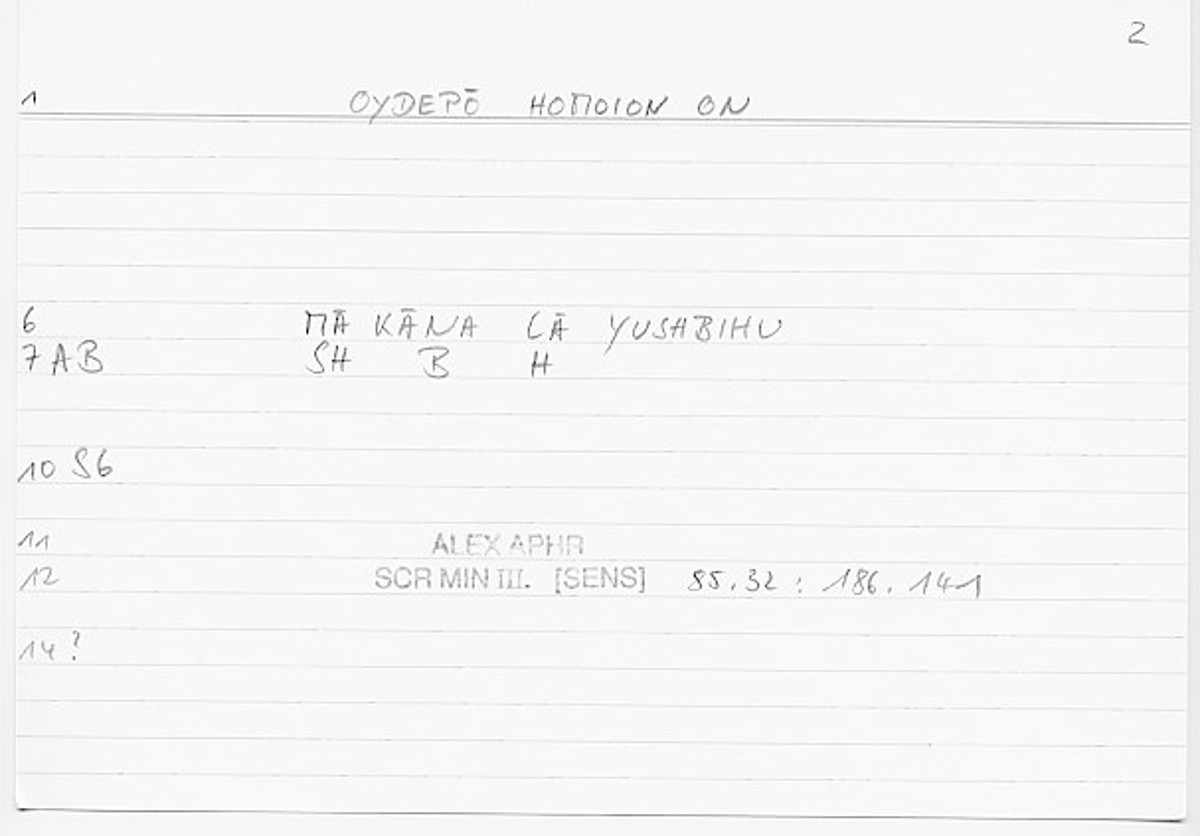 2
1 OYDEPŌ HOMOION ON
6 MĀ KĀNA LĀ YUSHBIHU
7 AB SH B H
10 S6
11 ALEX APHR
12 SCR MIN III. [SENS] 85.32 : 186.141
14?